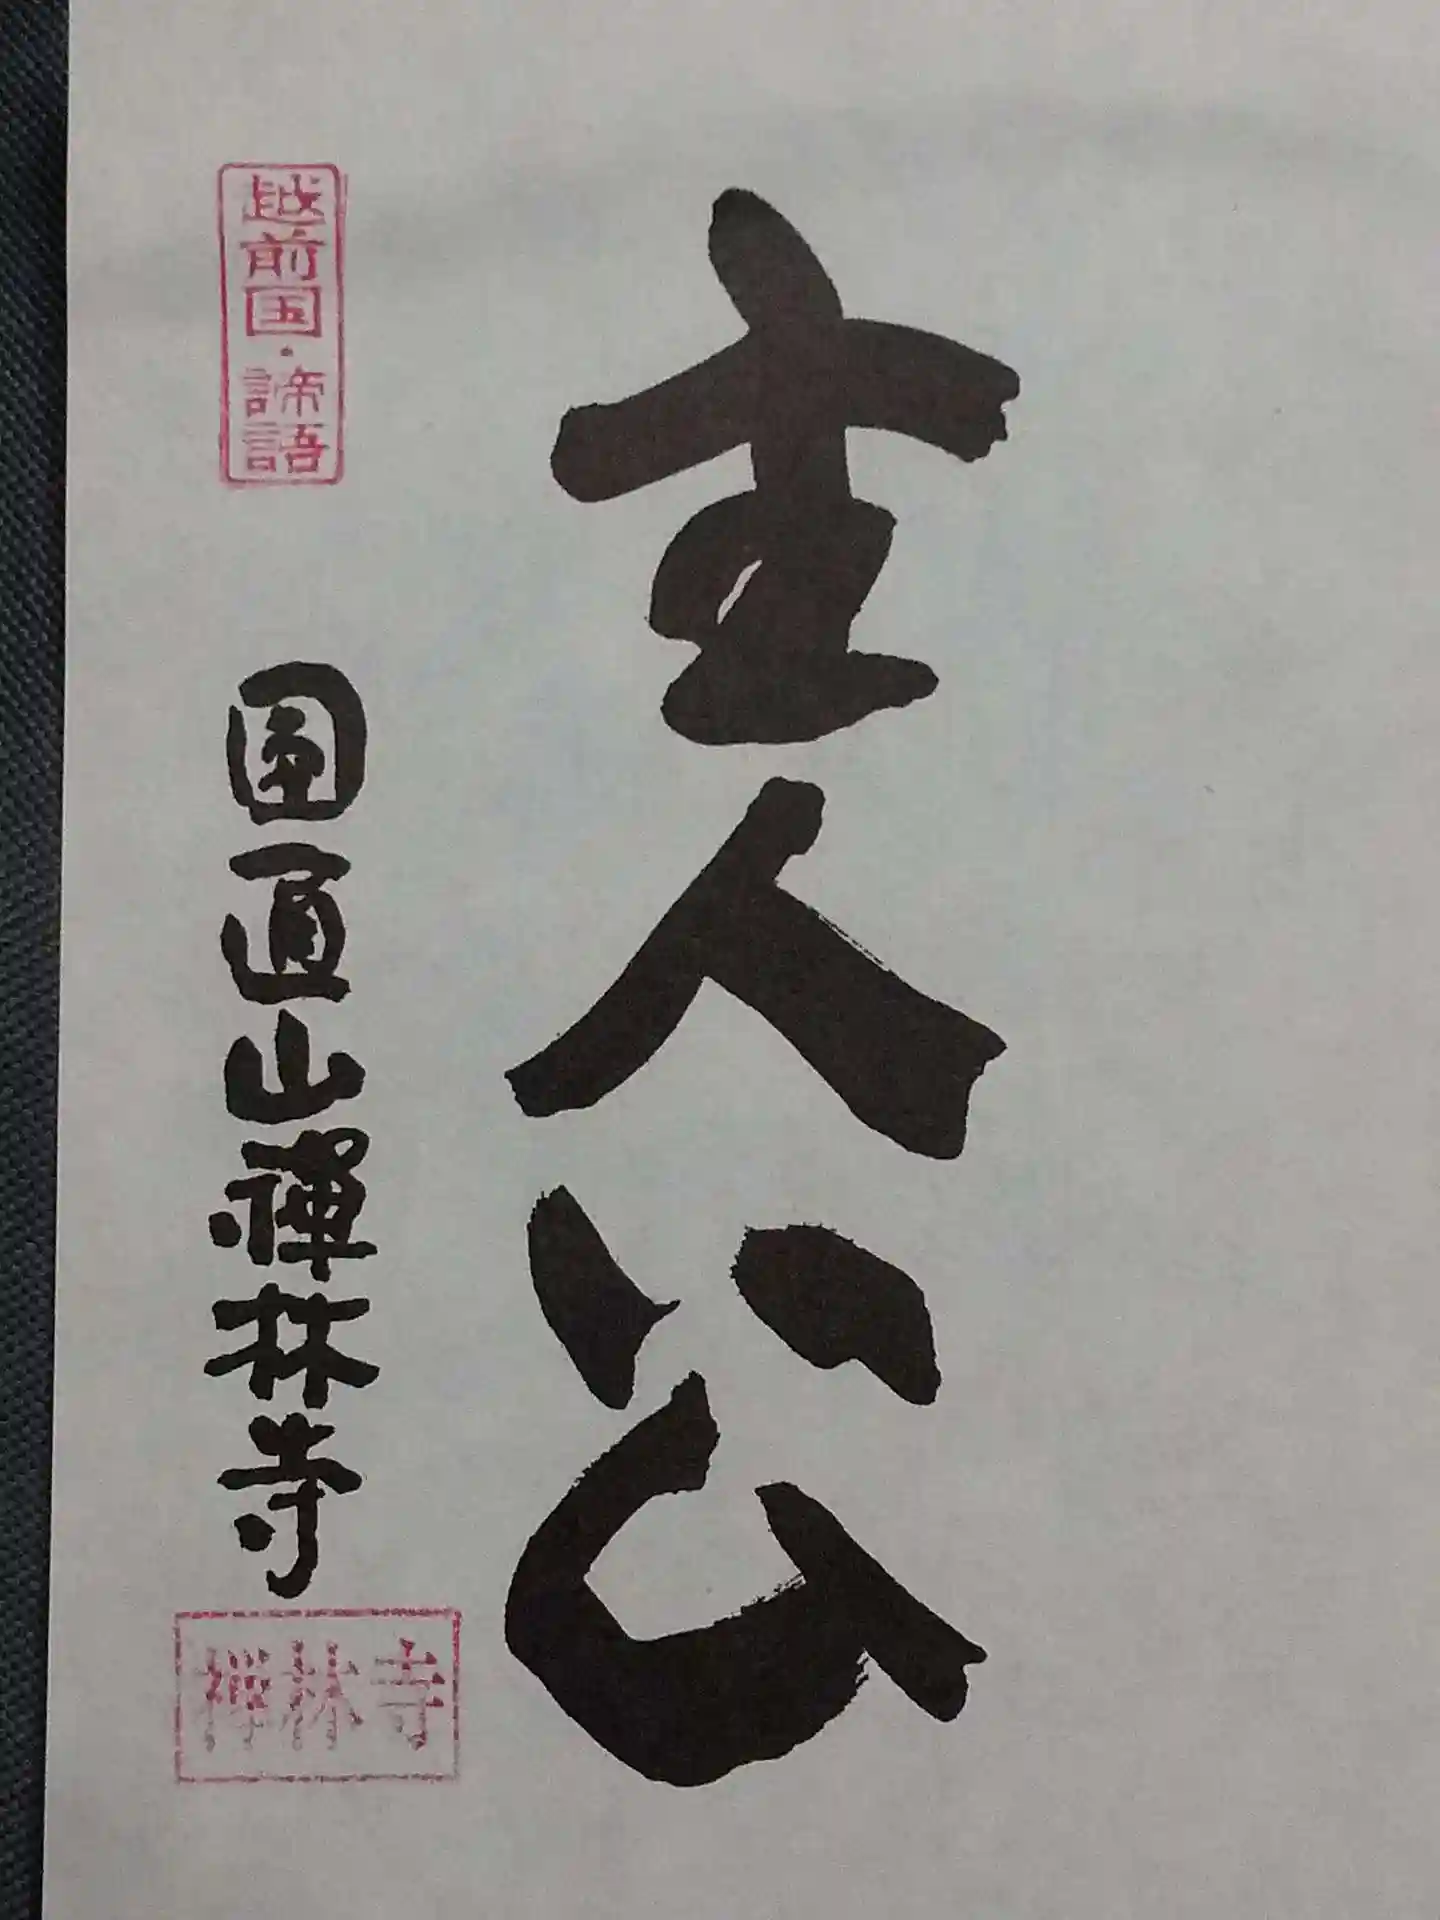 主人公
越前国・諦語
圓通山禅林寺
禅林寺